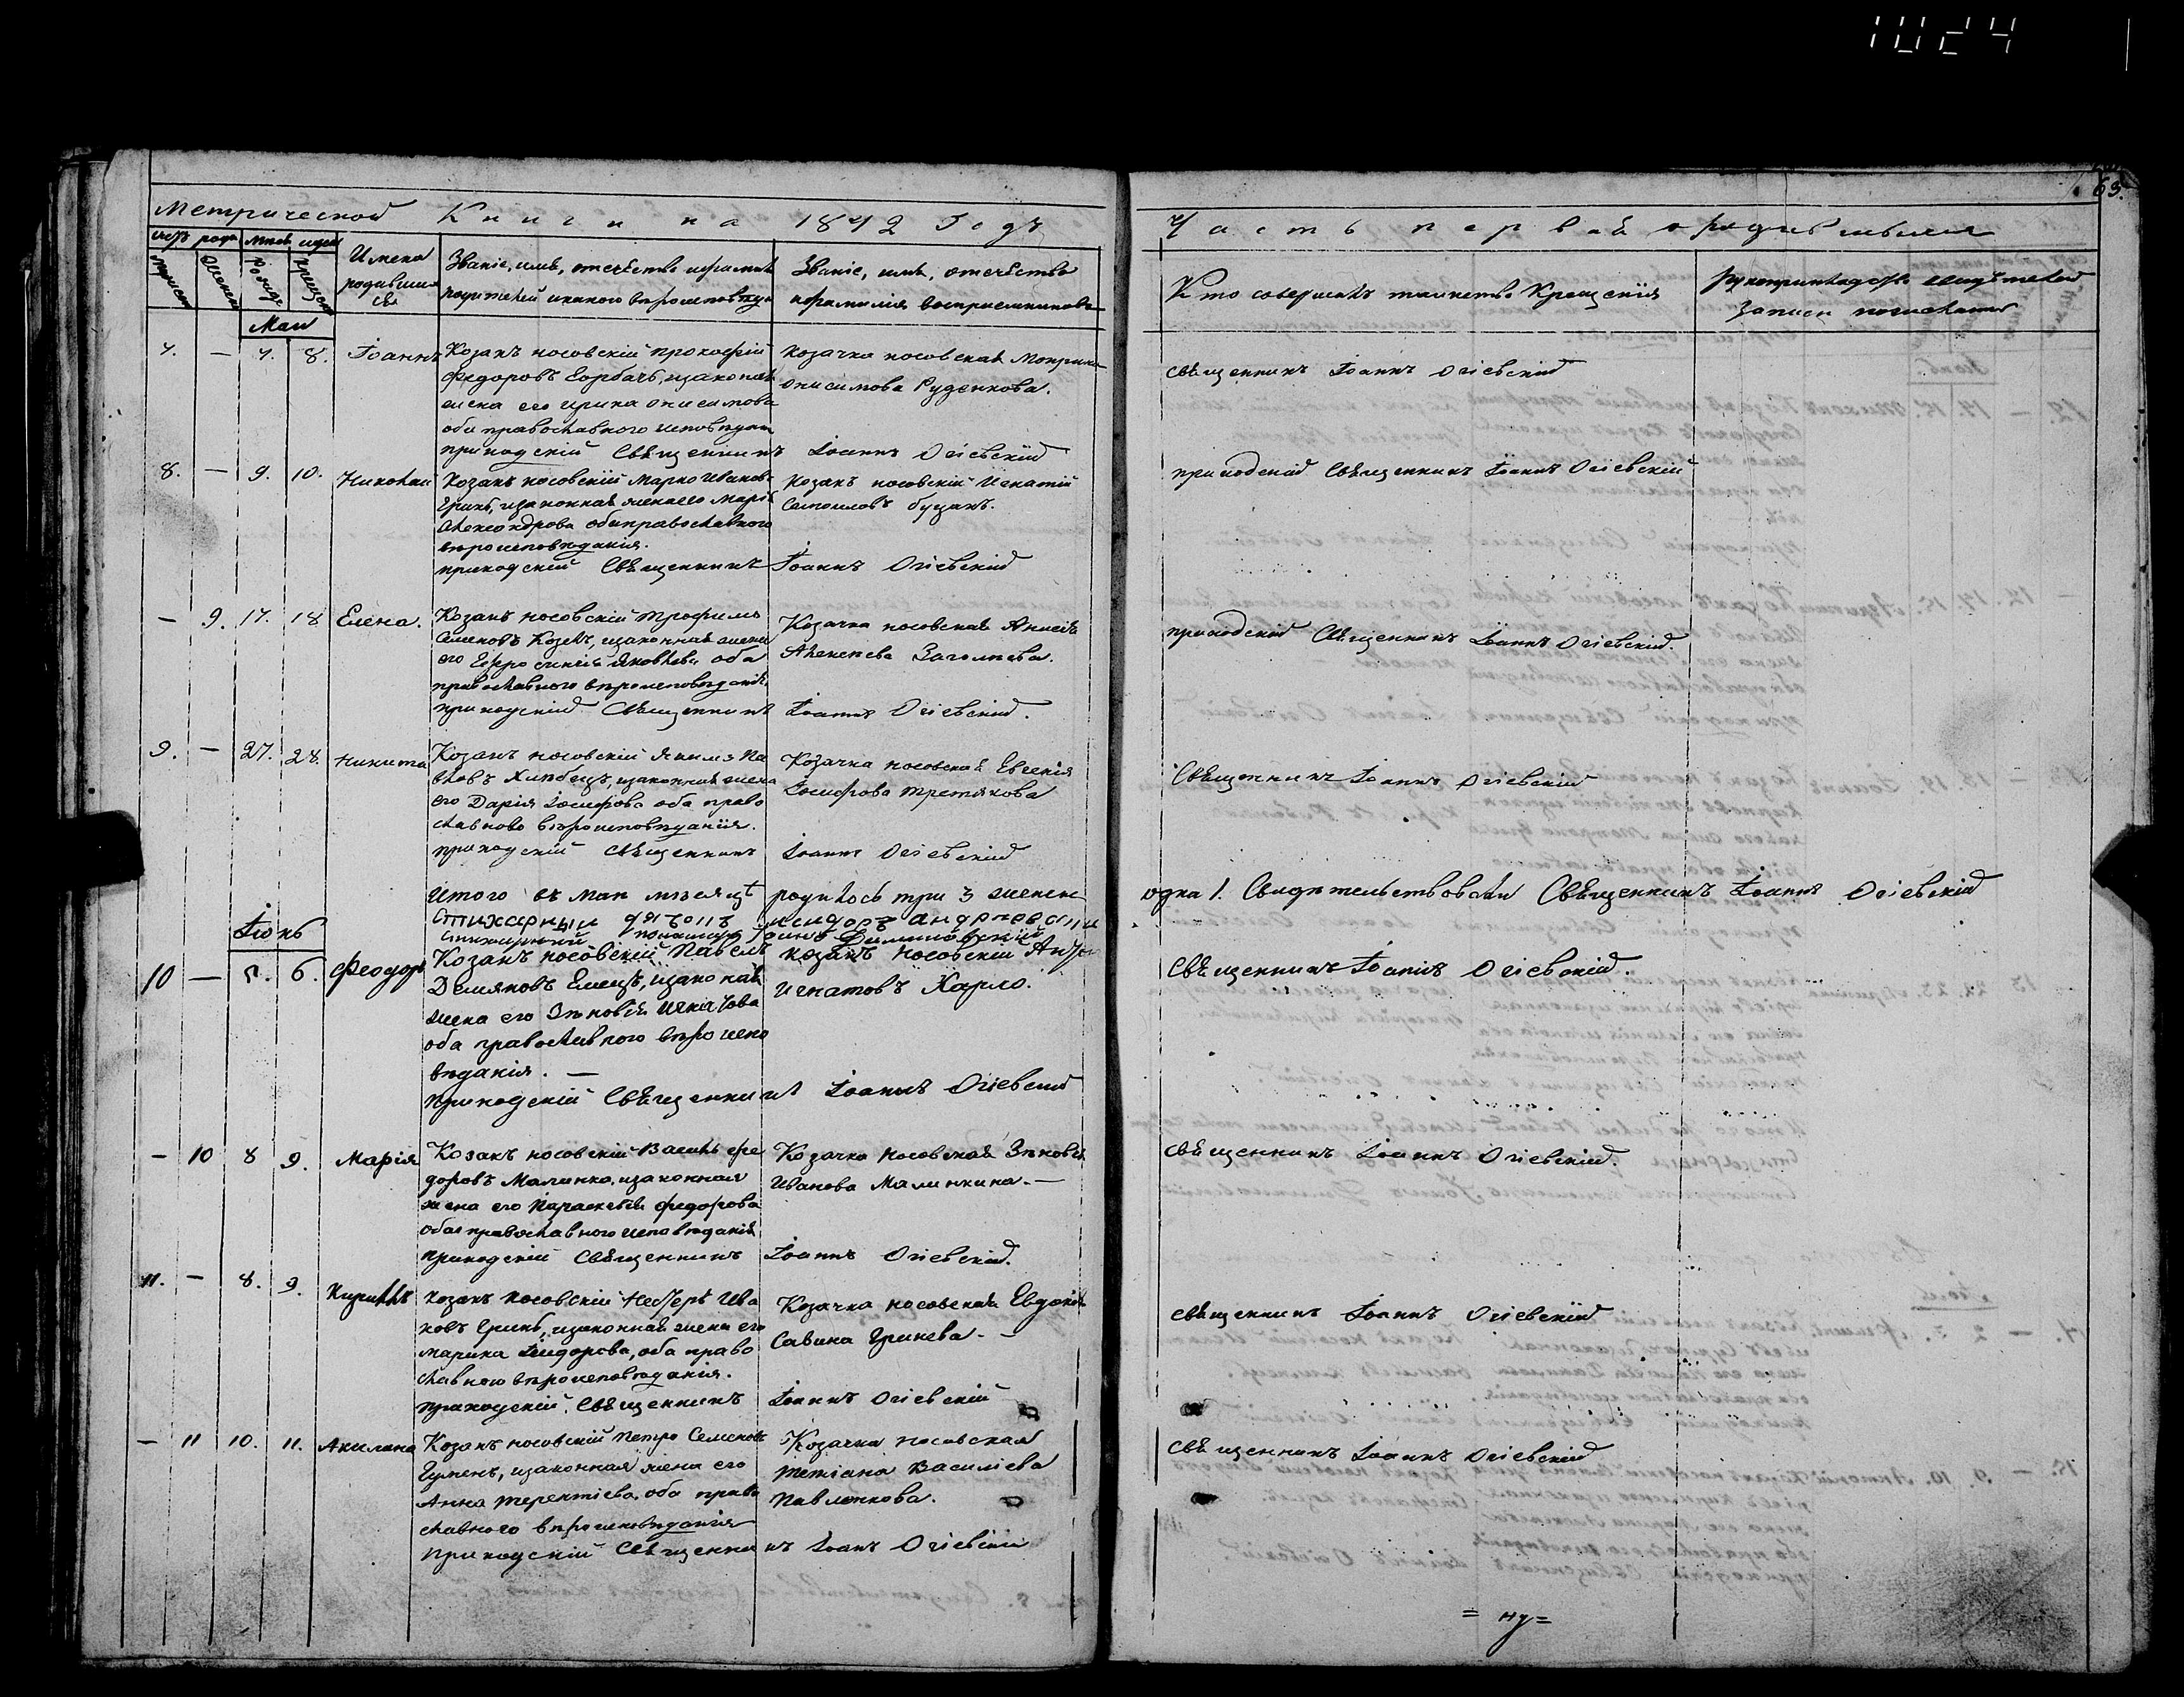 1024
63.
Метрической Книги на 1842 Годъ
Часть первая о родившихся
Счетъ родив
Имена родившихся
Званіе, имя, отечество и фамилія родителей и какого вѣроисповѣд
Званіе, имя, отечество и фамилія воспріемниковъ
Кто совершалъ таинство Крещенія
Рукоприкладство свидѣтелей записи по желанію
Маи
7. — 7. 8. Іоаннъ
Козакъ носовскій Прокофій
Федоровъ Горбачъ, и законная
жена его Ирина Онисимова
оба православного исповѣдан
Козачка носовская Мотрина
Онисимова Руденкова.
приходскій Священникъ Іоаннъ Огіевскій
Священникъ Іоаннъ Огіевскій
8. — 9. 10. Николай
Козакъ носовскій Марко Иванов
Гринь, и законная жена его Марія
Александрова оба православного
вѣроисповѣданія.
Козакъ носовскій Игнатій
Самоиловъ Буцанъ.
приходскій Священникъ Іоаннъ Огіевскій
приходскій Священникъ Іоаннъ Огіевскій
— 9. 17. 18 Елена.
Козакъ носовскій Трофимъ
Семеновъ Козелъ, и законная жена
его Ефросинія Яковлева оба
православного вѣроисповѣданія.
Козачка носовская Анисія
Алексеева
приходскій Священникъ Іоаннъ Огіевскій.
приходскій Священникъ Іоаннъ Огіевскій.
9. — 27. 28. Никита
Козакъ носовскій Якимъ Па
вловъ Хлибецъ, и законная жена
его Дарія Іосифова оба право
славного вѣроисповѣданія.
Козачка носовская Евгенія
Іосифова Третякова
приходскій Священникъ Іоаннъ Огіевскій
Священникъ Іоаннъ Огіевскій
Итого въ маи мѣсяцѣ родилось три 3 женск
одна 1. Свидѣтельствовали Священникъ Іоаннъ Огіевскій
Стихарный дяконъ Исидоръ
Стихарный пономарь
Іюнь
10 — 5. 6. Феодор
Козакъ носовскій Павелъ
Демяновъ Емецъ, и законая
жена его Зѣновія Игнатова
оба православного вѣроиспо
вѣданія. —
Козакъ носовскій Антон
Игнатовъ Карло.
приходскій Священникъ Іоаннъ Огіевскій
Священникъ Іоаннъ Огіевскій.
— 10 8 9. Марія
Козакъ носовскій Василь Фе
доровъ Малинко, и законная
жена его Параскевія Федорова
обое православного исповѣданія
Козачка носовская Зѣновія
Иванова Малинкина. —
приходскій Священникъ Іоаннъ Огіевскій.
Священникъ Іоаннъ Огіевскій.
11. — 8. 9. Кириллъ
Козакъ носовскій Несторъ Ива
новъ Гринь, и законная жена его
Марина Сидорова, оба право
славного вѣроисповѣданія.
Козачка носовская Евдокія
Савина Гринева. —
приходскій Священникъ Іоаннъ Огіевскій
Священникъ Іоаннъ Огіевскій
— 11 10. 11. Акилина
Козакъ носовскій Петро Семеновъ
Гуменъ, и законная жена его
Анна Терентіева, оба право
славного вѣроисповѣданія
Козачка носовская
Тетіана Василіева
Павленкова.
приходскій Священникъ Іоанъ Огіевскій
Священникъ Іоаннъ Огіевскій
= ну =